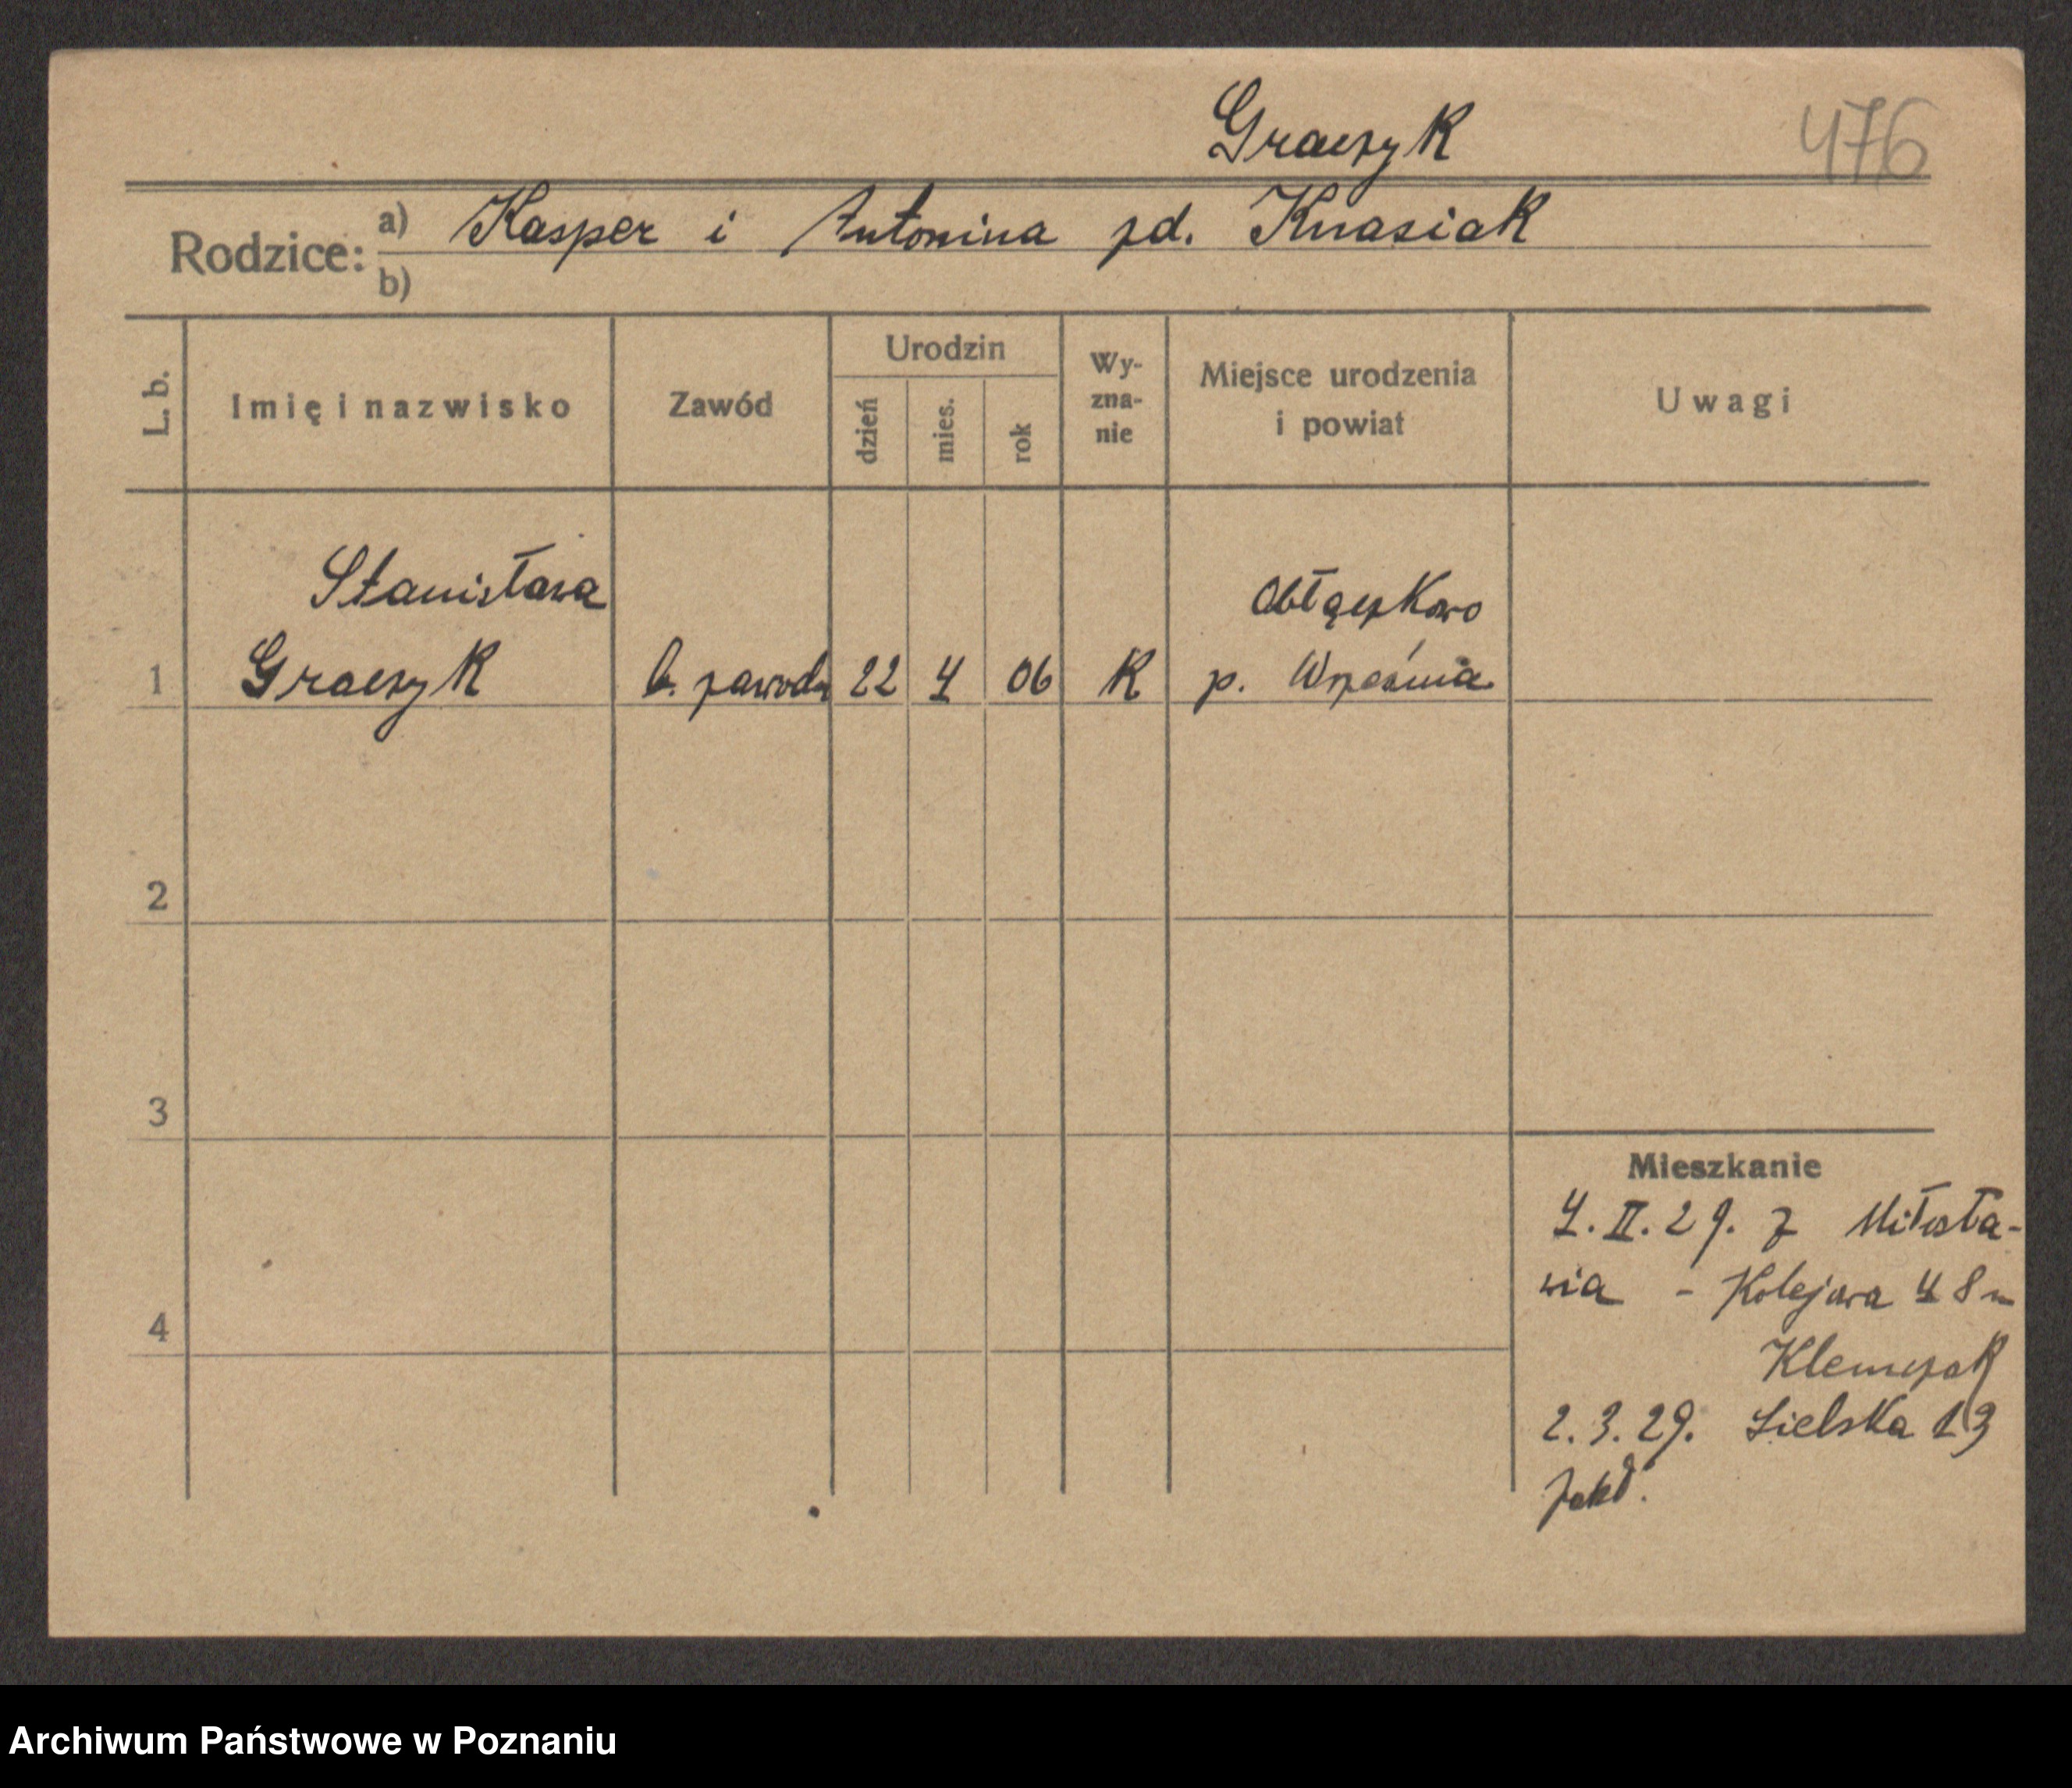 Graczyk
476
Rodzice: a) Kasper i Antonina zd. Knasiak
b)
L. b.
Imię i nazwisko
Zawód
Urodzin
dzień
mies.
rok
Wy-
zna-
nie
Miejsce urodzenia
i powiat
Uwagi
Stanisława
Obłączkowo
1 Graczyk b. zawodu 22 4 06 K p. Września
2
3
4
Mieszkanie
4. II. 29. z Miłosła-
wia - Kolejowa 48 m
Klemczak
2. 3. 29. Sielska 13
zakł.
Archiwum Państwowe w Poznaniu